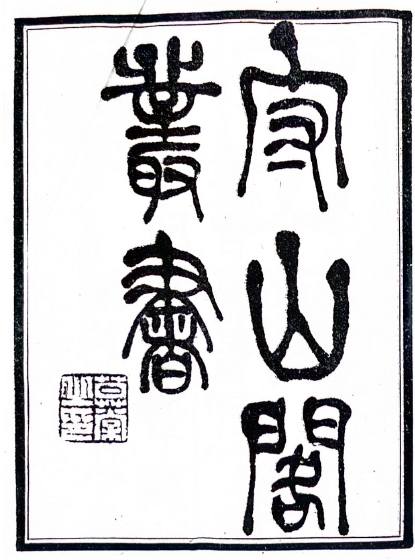 守山閣
叢書